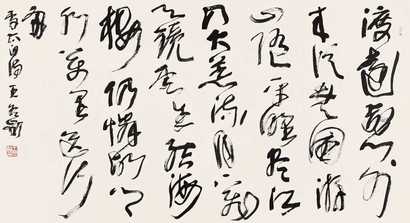 渡遠荊门外
来從楚國游
山隨平野盡江
入大荒流月下飛
天鏡雲生結海
樓仍憐故鄉
水万里送行
舟
李太白詩王冬齡